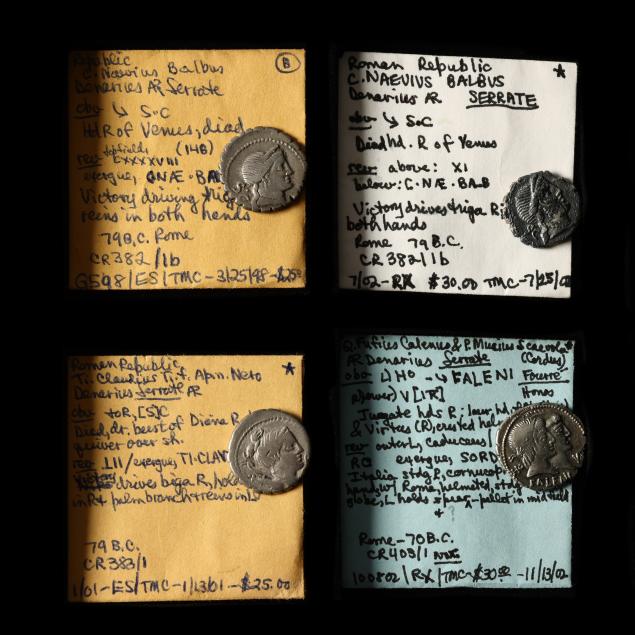 Republic
C. Naevius Balbus
Denarius AR Serrate
B
obv ↘ S.C
Hd R of Venus, diad.
rev top field: (148)
CXXXXVIII
exergue, C.NÆ.BA
Victory driving trig
reins in both hands
79 B.C. Rome
CR 382/1b
G598/ES/TMC-3/25/98-$25.00
Roman Republic
*
C. NAEVIUS BALBUS
Denarius AR SERRATE
obv ↘ S.C
Diad hd. R of Venus
rev above: XI
below: C.NÆ.BAB
Victory drives triga R;
both hands
Rome 79 B.C.
CR 382/1b
7/02-RX $30.00 TMC-7/25/0
Roman Republic
*
Ti. Claudius Ti.f. Ap.n. Nero
Denarius Serrate AR
obv to R, [S]C
Diad, dr. bust of Diana R
quiver over sh.
rev LII/exergue, TI.CLAV
drives biga R, hold
in R + palm branch + reins in L
79 B.C.
CR 383/1
1/01-ES/TMC-1/13/01-$25.00
Q. Fufius Calenus & P. Mucius Scaevola*
AR Denarius Serrate (Cordus)
obv HO → KALENI Fourré
Honos
Jugate hds R; laur. hd.
& Virtus (R), crested hel
rev outerly, caduceus
RO exergue, CORD
Italia stdg R, cornucop
hands w/ Roma,
globe, L holds spear - pellet in mid field
Rome-70 B.C.
CR 403/1
100802/RX/TMC-$30.00-11/13/02